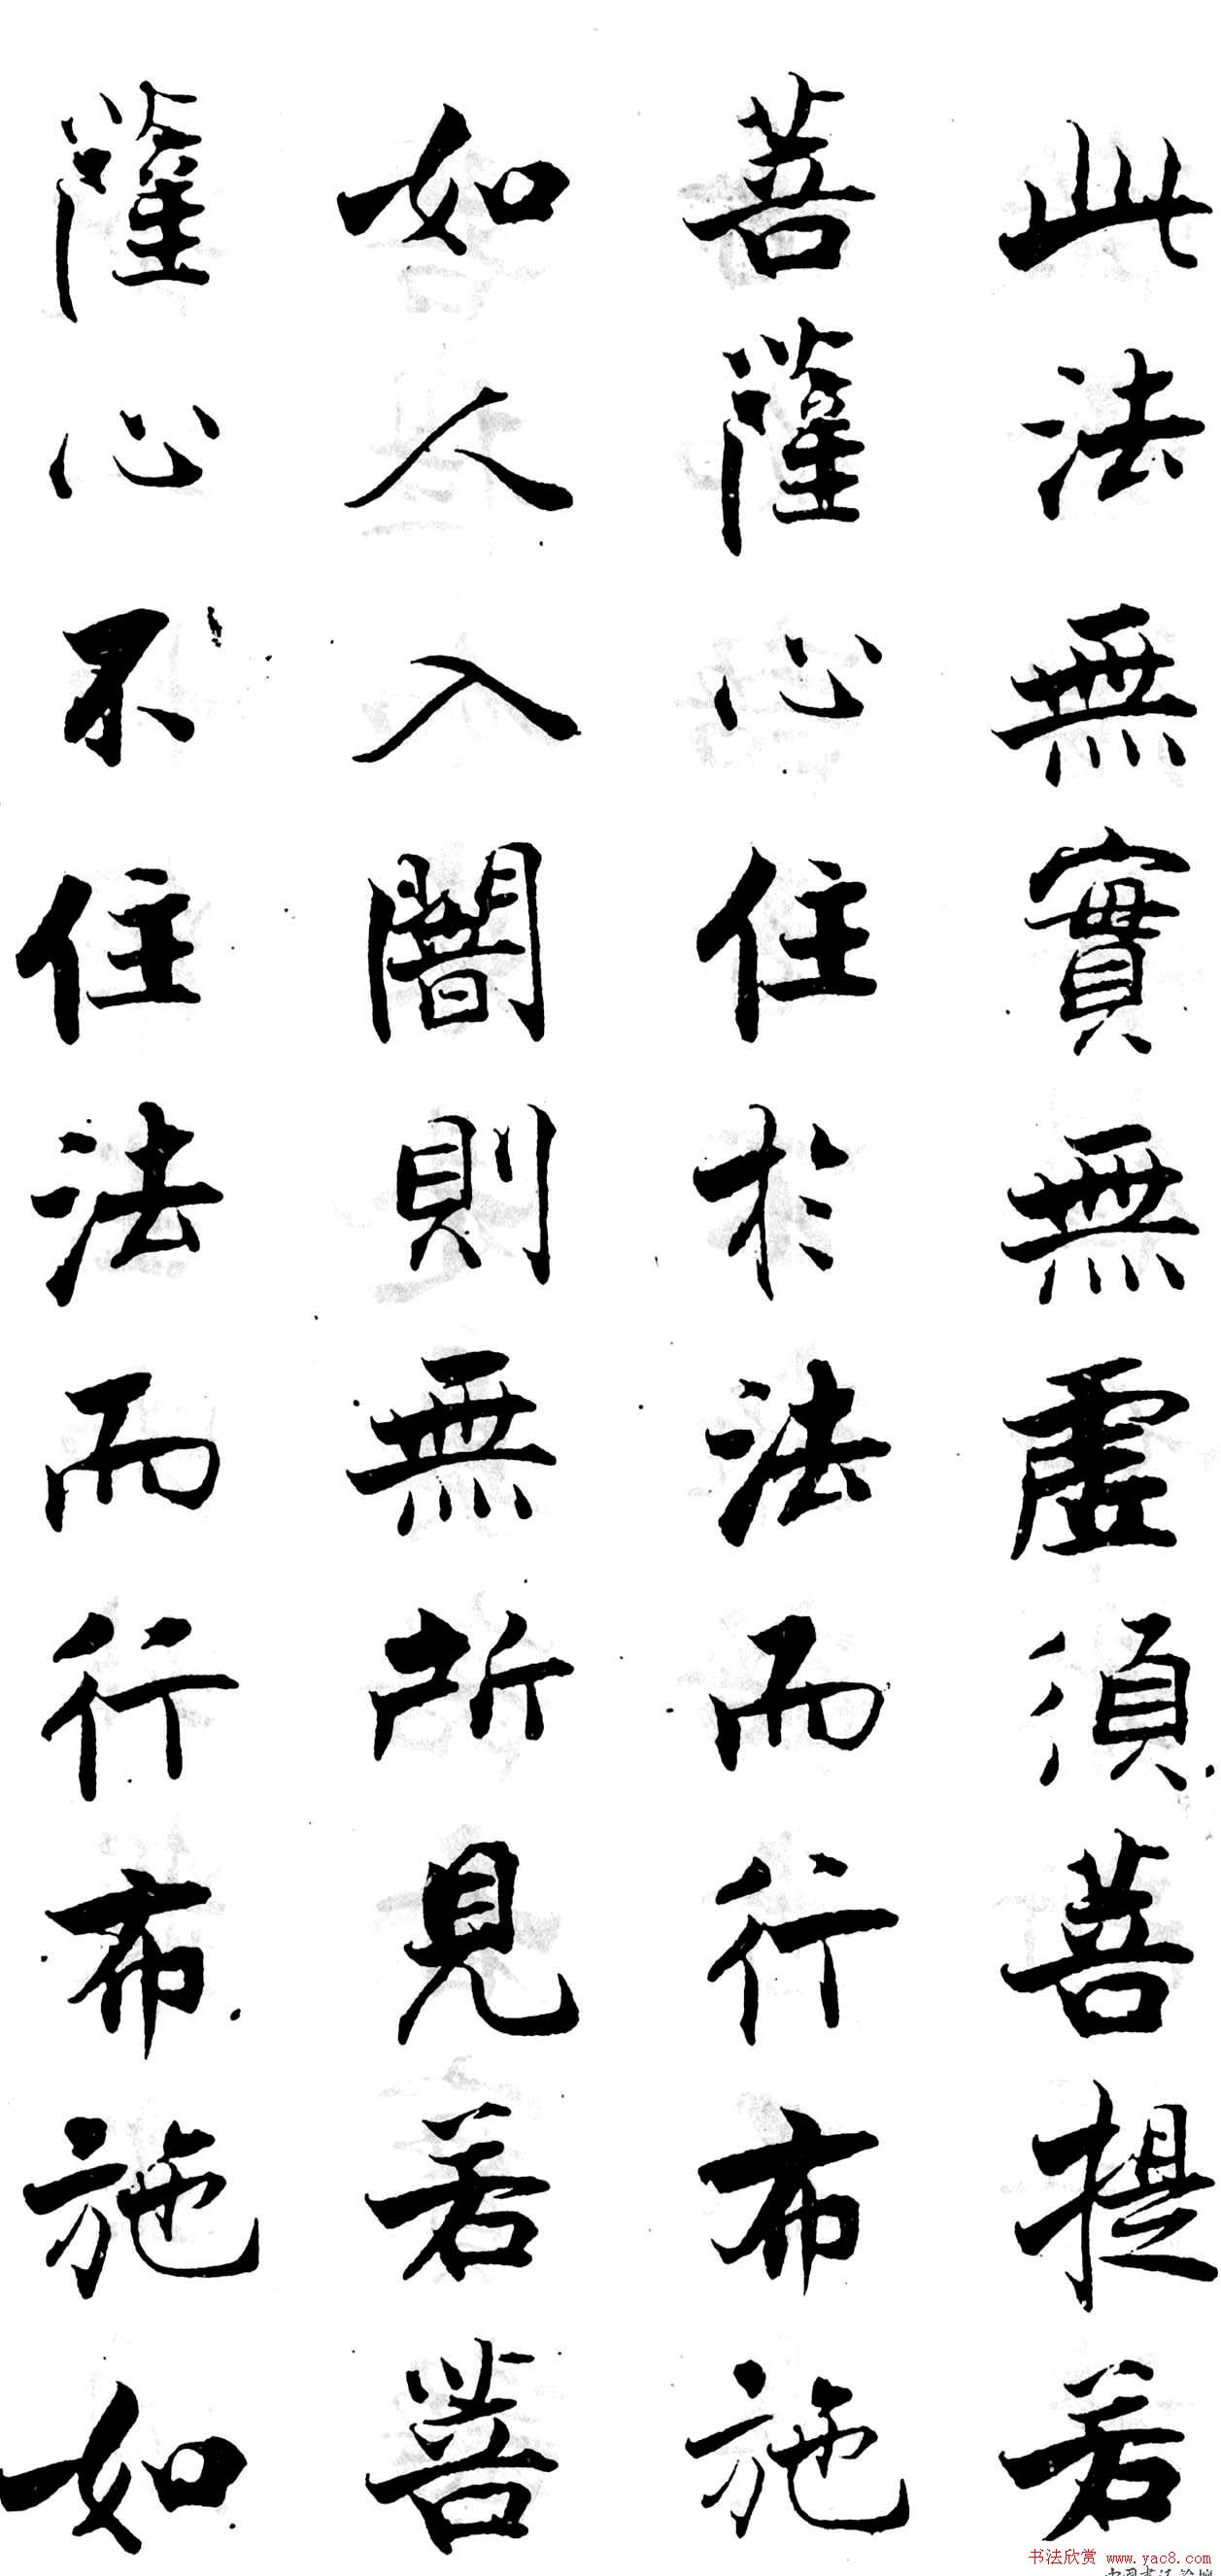 此法無實無虛須菩提若
菩薩心住於法而行布施
如人入闇則無所見若菩
薩心不住法而行布施如
书法欣赏 www.yac8.com